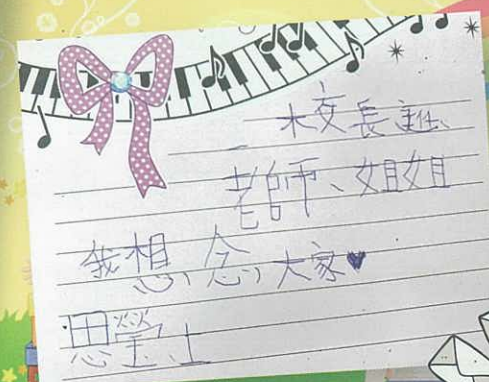 校長主任、
老師、姐姐
我想念大家♥
思瑩上